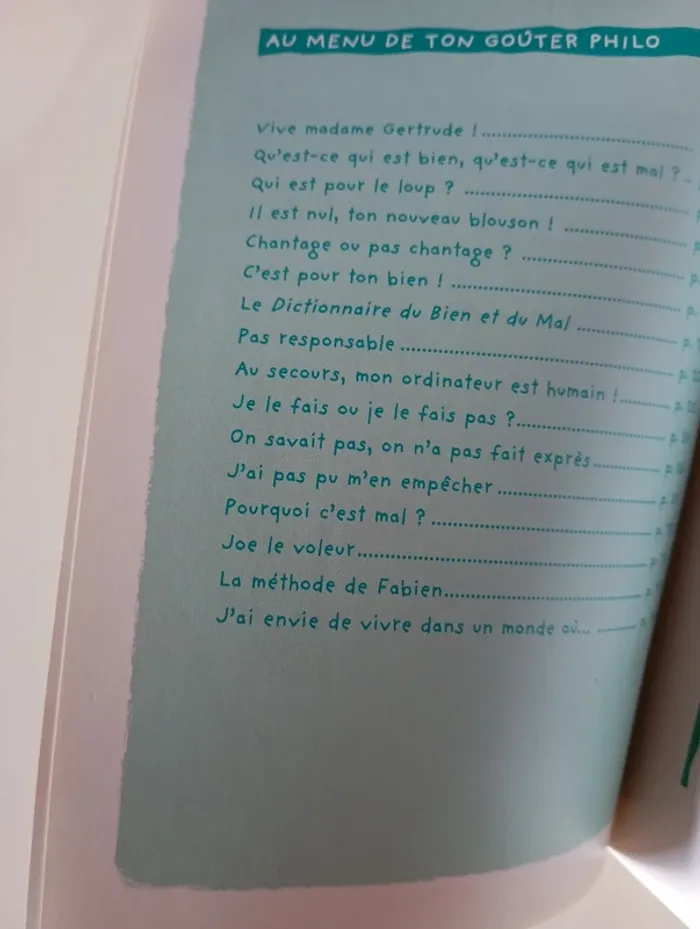 AU MENU DE TON GOÛTER PHILO
Vive madame Gertrude !
Qu'est-ce qui est bien, qu'est-ce qui est mal ?
Qui est pour le loup ?
Il est nul, ton nouveau blouson !
Chantage ou pas chantage ?
C'est pour ton bien !
Le Dictionnaire du Bien et du Mal
Pas responsable
Au secours, mon ordinateur est humain !
Je le fais ou je le fais pas ?
On savait pas, on n'a pas fait exprès
J'ai pas pu m'en empêcher
Pourquoi c'est mal ?
Joe le voleur
La méthode de Fabien
J'ai envie de vivre dans un monde où...